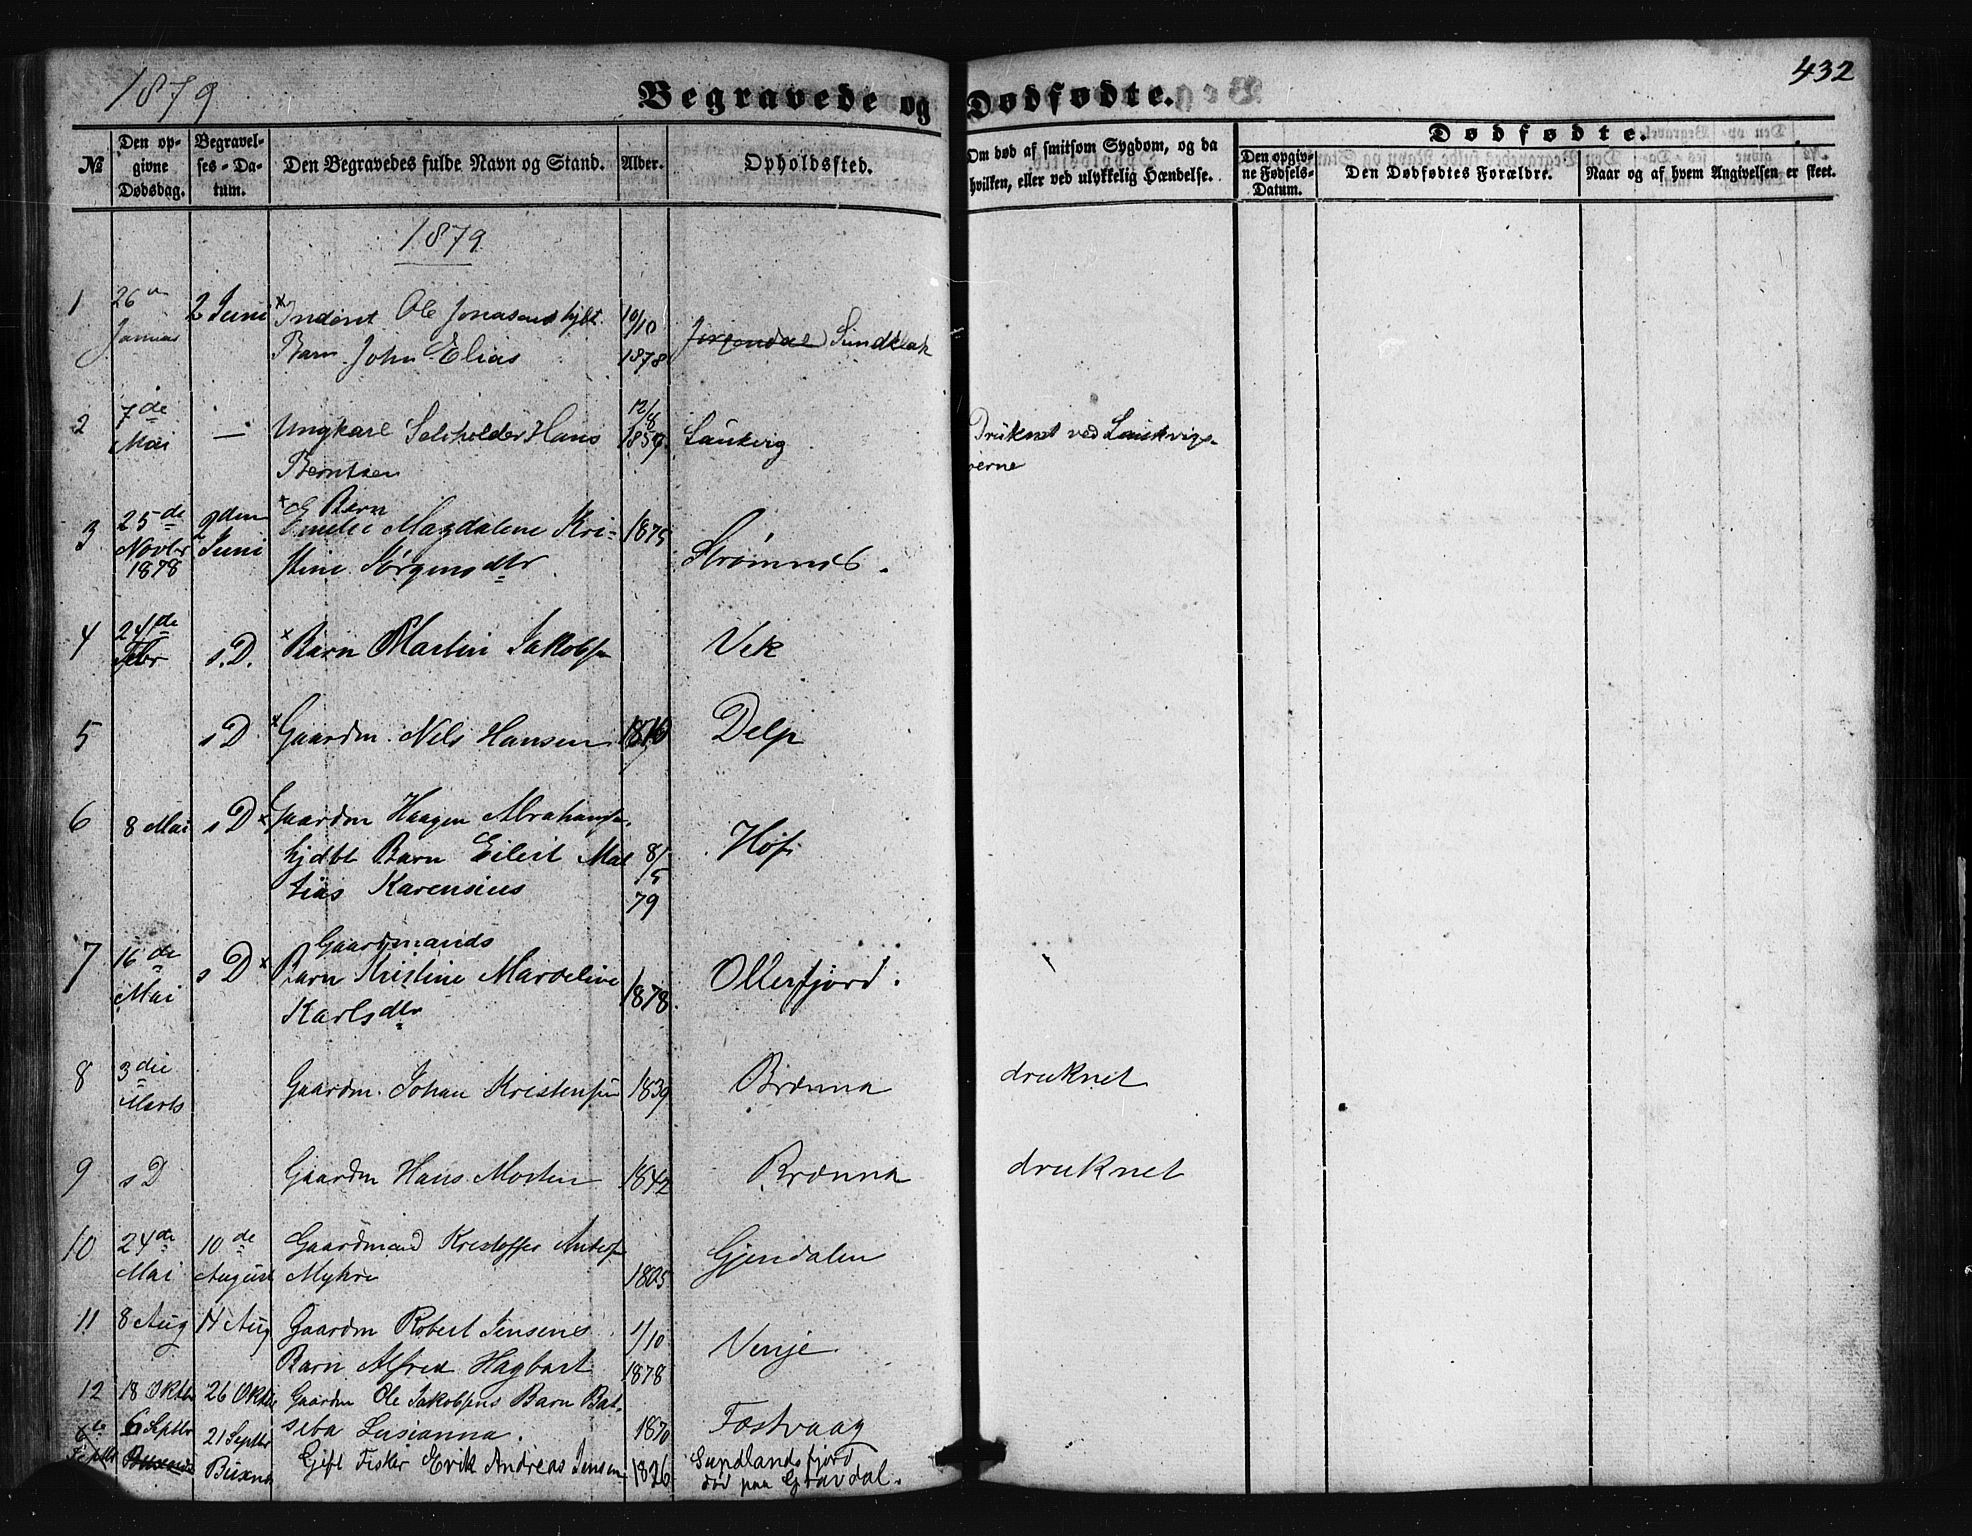 1879
432
Begravede og Dødfødte.
№
Den op-
givne
Dødsdag.
Begravel-
ses-Da-
tum.
Den Begravedes fulde Navn og Stand.
Alder.
Opholdssted.
Om død af smitsom Sygdom, og da
hvilken, eller ved ulykkelig Hændelse.
Dødfødte.
Den opgiv-
ne Fødsels-
Datum.
Den Dødfødtes Forældre.
Naar og af hvem Angivelsen er skeet.
1879
1 26 Januar 2 Juni × Inderst Ole Jonasens 10/10
Barn John Elias 1878 Sundklak
2 7de Mai — Ungkarl Selvholder Hans 12/8 1859 Laukvig Druknet ved Laukvigs-
Berntsen
3 25de Novbr 1878 2den Juni × Barn
Emelie Magdalene Kri- 1875 Strømnes.
stine Jørgensdtr
4 24de Febr s.D. × Barn Martin Jakobsen Vik
5 s D × Gaardm. Nils Hansen Delp
6 8 Mai s D × Gaardm Haagen Abrahams.
hjdbt Barn Eilert Mat 8/5 Hof
tias Karensius 79
7 16de Mai s D × Gaardmands
Barn Kristine Mardelive 1878. Ollerfjord.
Karlsdtr
8 3die Marts Gaardm. Johan Kristensen 1839 Brænna druknet
9 s D Gaardm Hans Morten 1842 Brænna druknet
10 24de Mai 10de August Gaardmand Kristoffer Anders Gjerdalen
Myhre 1805
11 8 Aug 14 Aug Gaardm Robert Jensens 1/10 Vinje
Barn Alfred Hagbart 1878
12 18 Oktbr 26 Oktbr Gaardm Ole Jakobsens Barn Bat-
seba Lusianna. 1870 Fæstvaag
6 Septbr 21 Septbr Buxnæs Gift Fisker Erik Andreas Jensen 1826 Sundlandsfjord
død paa Gravdal.